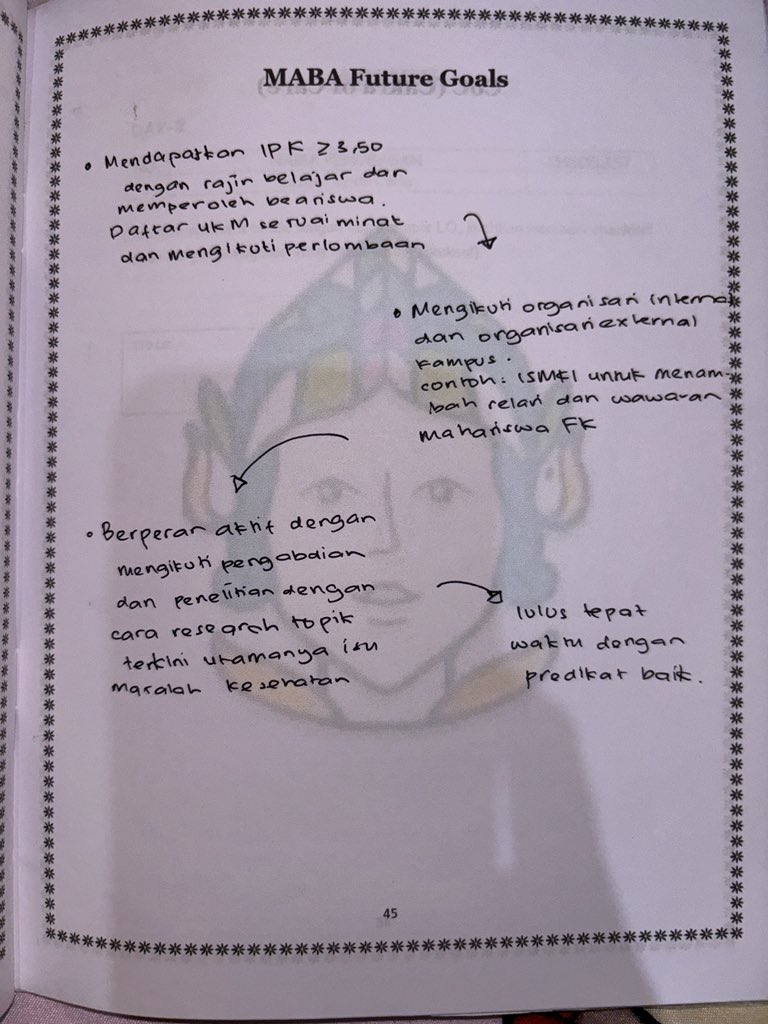 MABA Future Goals
• Mendapatkan IPK ≥ 3,50
dengan rajin belajar dan
memperoleh beasiswa.
Daftar UKM sesuai minat
dan mengikuti perlombaan
• Mengikuti organisasi internal
dan organisasi external
kampus.
contoh: ISMKI untuk menam-
bah relasi dan wawasan
mahasiswa FK
• Berperan aktif dengan
mengikuti pengabdian
dan penelitian dengan
cara research topik
terkini utamanya isu
masalah kesehatan
lulus tepat
waktu dengan
predikat baik.
45